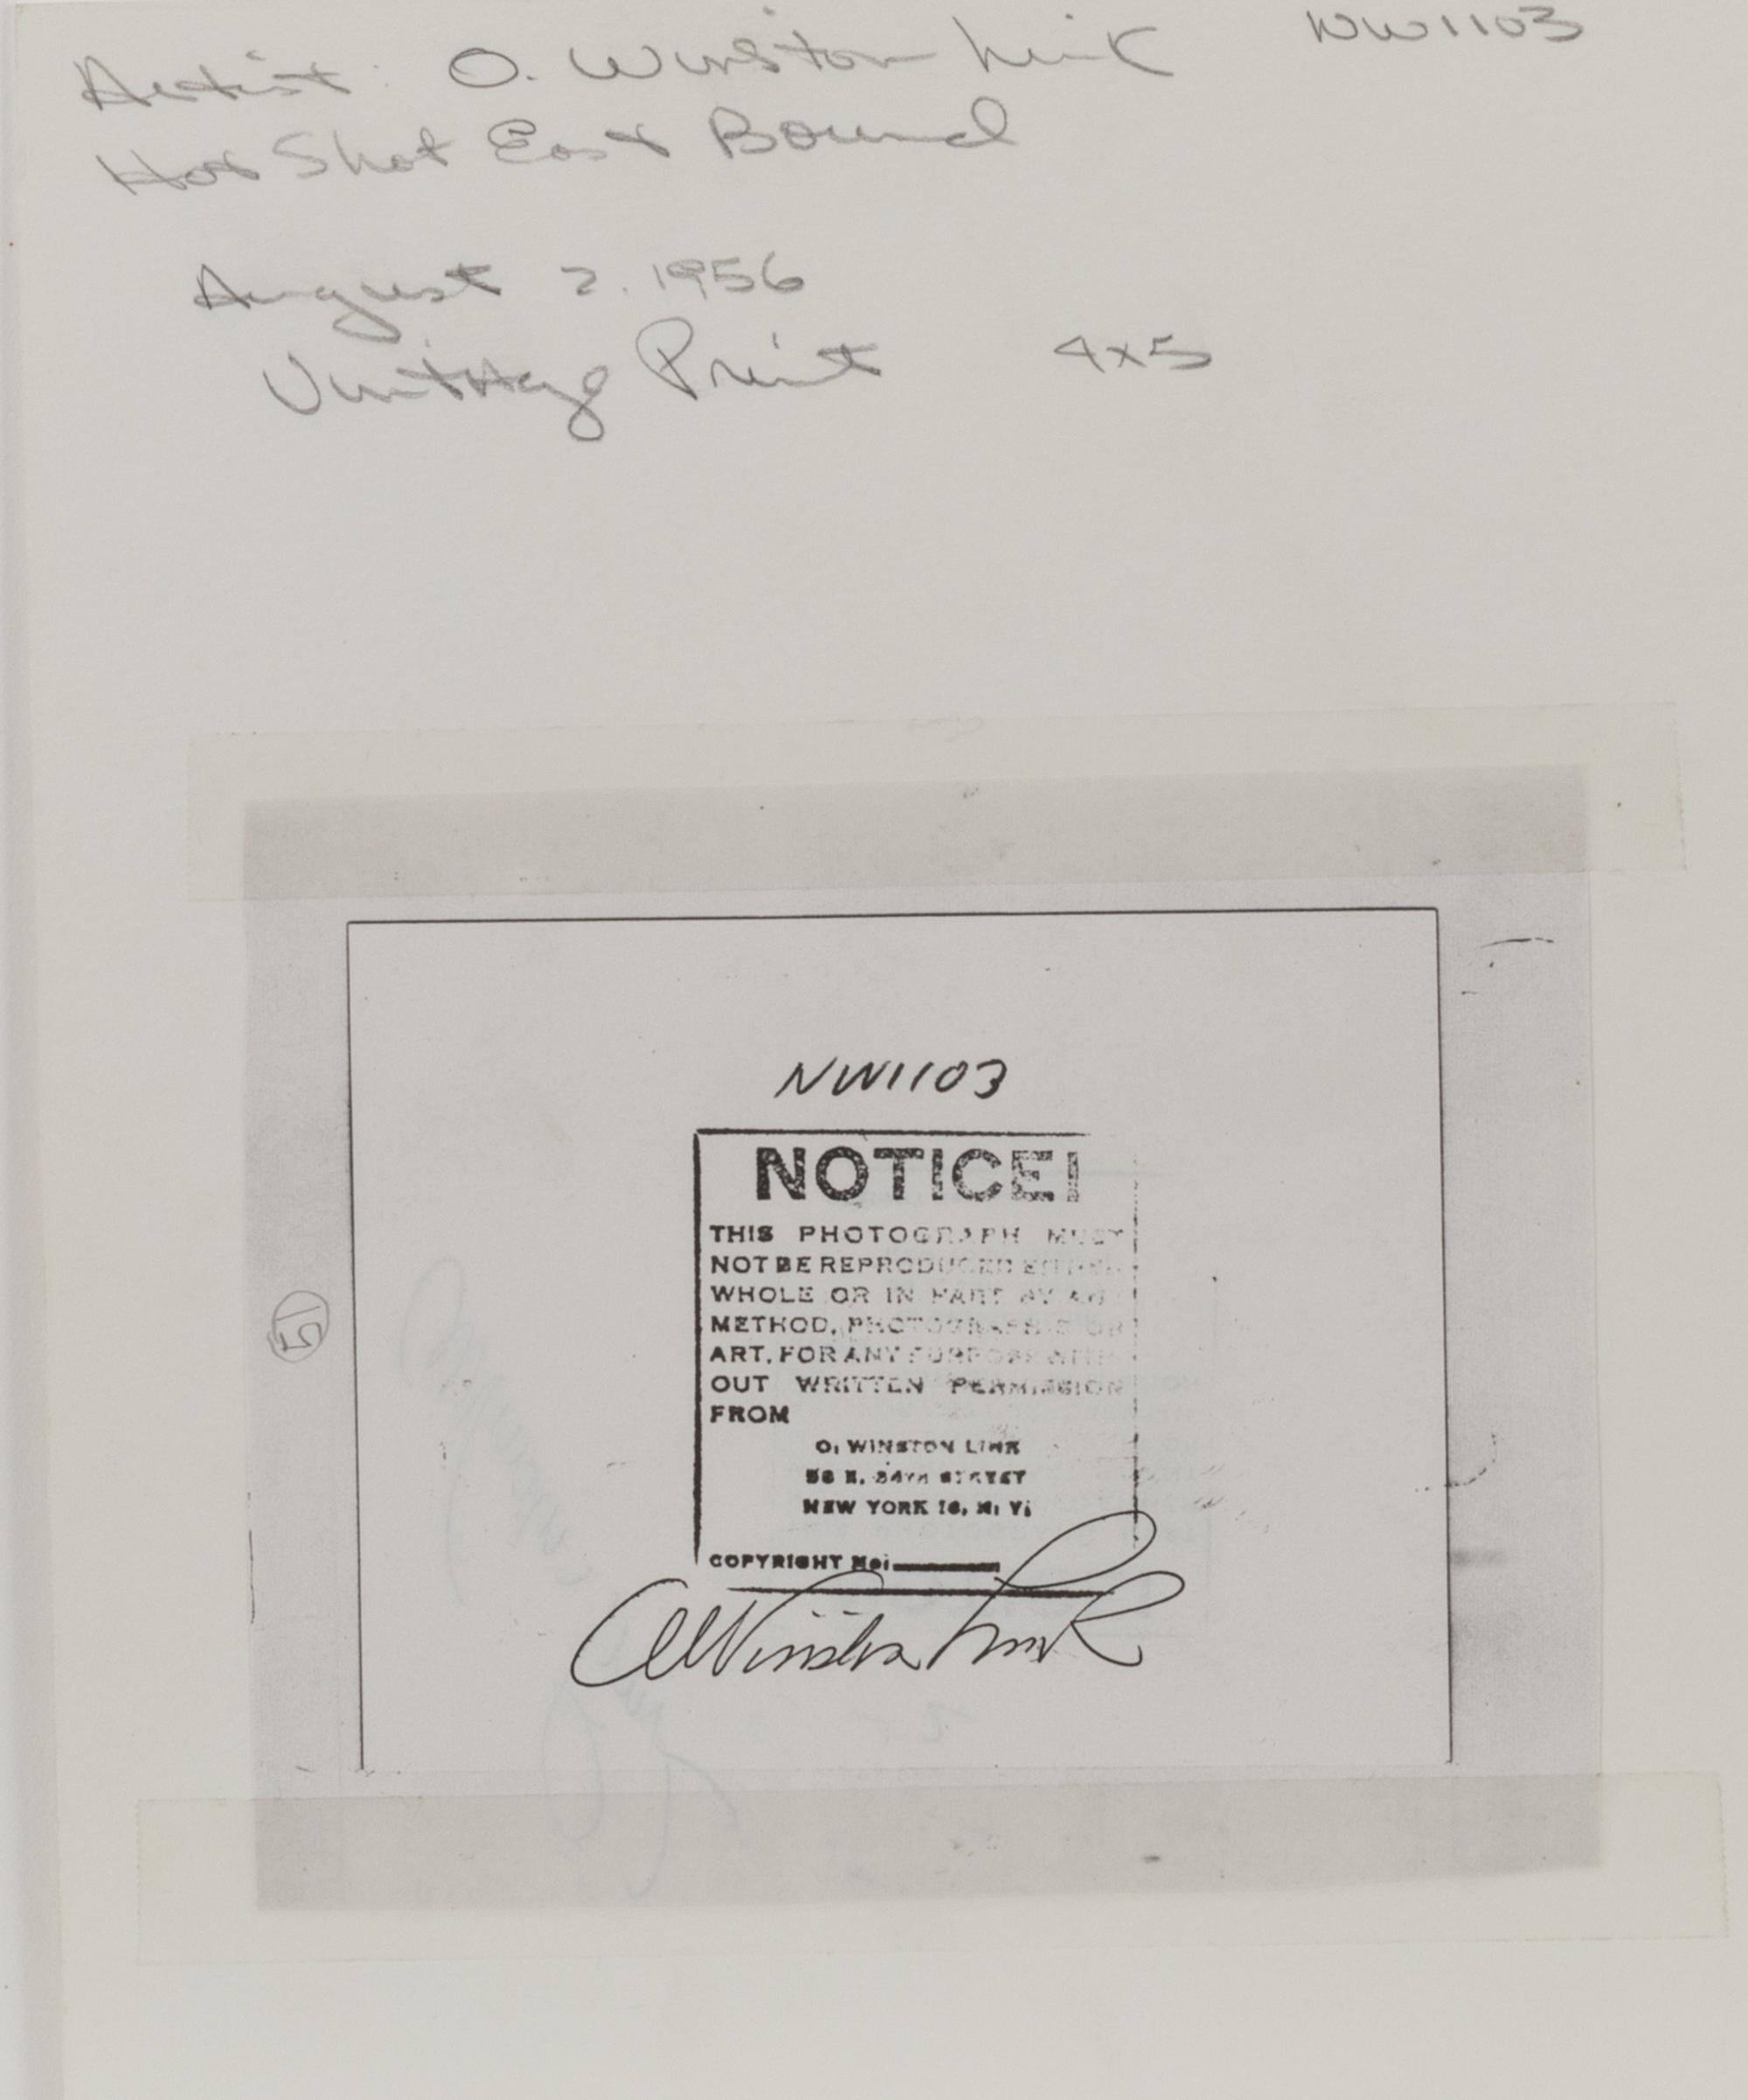 Artist: O. Winston Link NW1103
Hot Shot East Bound
August 2. 1956
Vintage Print 4x5
NW1103
NOTICE!
THIS PHOTOGRAPH MUST
NOT BE REPRODUCED EITHER
WHOLE OR IN PART BY ANY
METHOD, PHOTOGRAPHIC OR
ART, FOR ANY PURPOSE WITH-
OUT WRITTEN PERMISSION
FROM
O. WINSTON LINK
58 E. 34TH STREET
NEW YORK 16, N. Y.
COPYRIGHT No.
O Winston Link
15